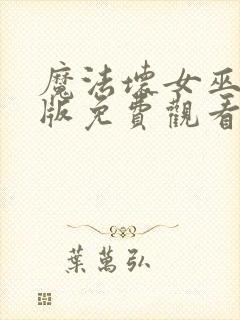 魔法壞女巫
版免費觀看
葉萬弘